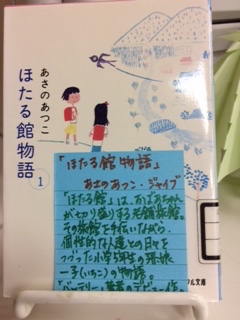 あさのあつこ
ほたる館物語
1
「ほたる館物語」
あさのあつこ・ジャイブ
「ほたる館」は、おばあちゃん
が切り盛りする老舗旅館。
その旅館を手伝いながら、
個性的な人達との日々を
つづった小学5年生の孫娘
一子(いちこ)の物語。
「バッテリー」著者のデビュー作
フル文庫